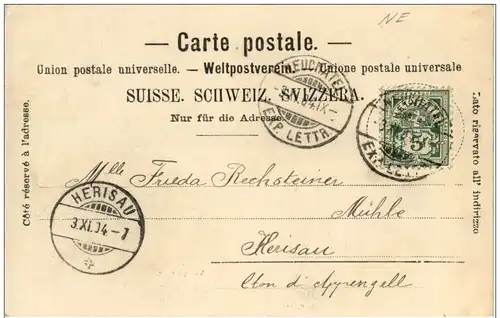 NE
— Carte postale. —
Union postale universelle. — Weltpostverein. — Unione postale universale
SUISSE. SCHWEIZ. SVIZZERA.
Nur für die Adresse.
EXP. LETTR.
5
EXP. LETTR.
Côté réservé à l'adresse.
Lato riservato all' indirizzo
Mlle Frieda Rechsteiner
Mühle
Herisau
Cton d'Appenzell
HERISAU
3.XI.04-7